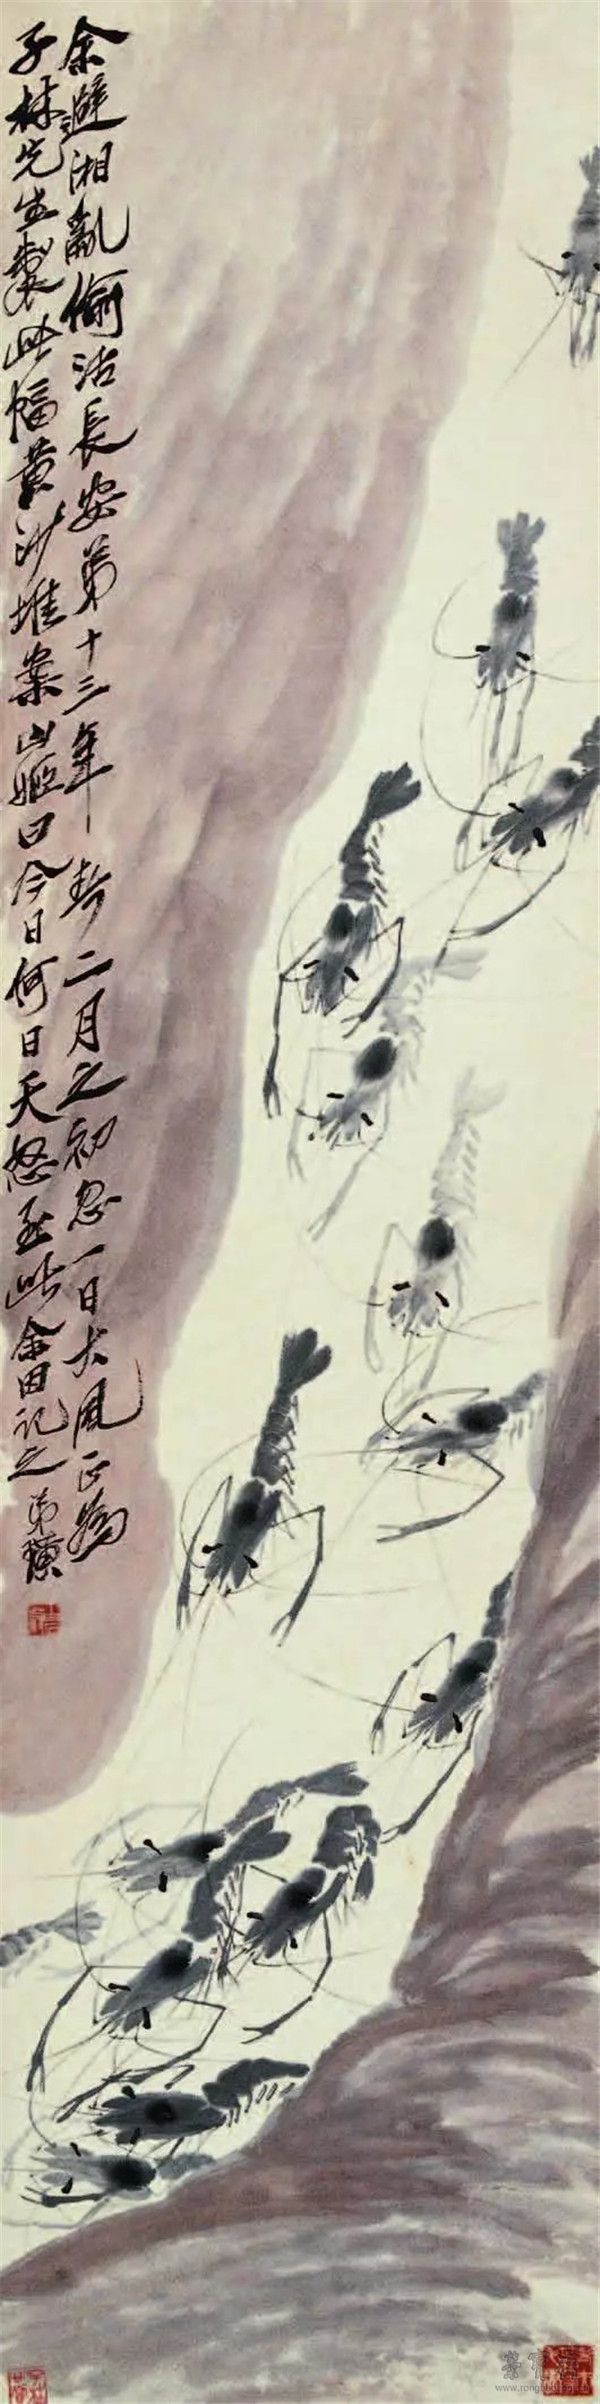 余避湘亂偷活長安第十三年許二月之初忽一日大風正為
子林先生製此幅黄沙堆案山姬曰今日何日天怒至此余因記之弟璜
榮寶齋